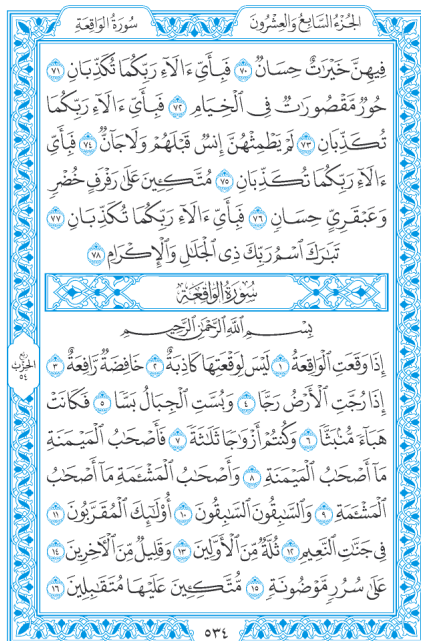 سُورَةُ الوَاقِعَةِ
الجُزْءُ السَّابِعُ وَالعِشْرُونَ
فِيهِنَّ خَيْرَٰتٌ حِسَانٌ ٧٠ فَبِأَيِّ ءَالَآءِ رَبِّكُمَا تُكَذِّبَانِ ٧١
حُورٌ مَّقْصُورَٰتٌ فِي ٱلْخِيَامِ ٧٢ فَبِأَيِّ ءَالَآءِ رَبِّكُمَا
تُكَذِّبَانِ ٧٣ لَمْ يَطْمِثْهُنَّ إِنسٌ قَبْلَهُمْ وَلَا جَآنٌّ ٧٤ فَبِأَيِّ
ءَالَآءِ رَبِّكُمَا تُكَذِّبَانِ ٧٥ مُتَّكِـِٔينَ عَلَىٰ رَفْرَفٍ خُضْرٍ
وَعَبْقَرِيٍّ حِسَانٍ ٧٦ فَبِأَيِّ ءَالَآءِ رَبِّكُمَا تُكَذِّبَانِ ٧٧
تَبَٰرَكَ ٱسْمُ رَبِّكَ ذِي ٱلْجَلَٰلِ وَٱلْإِكْرَامِ ٧٨
سُورَةُ الوَاقِعَةِ
بِسْمِ ٱللَّهِ ٱلرَّحْمَٰنِ ٱلرَّحِيمِ
إِذَا وَقَعَتِ ٱلْوَاقِعَةُ ١ لَيْسَ لِوَقْعَتِهَا كَاذِبَةٌ ٢ خَافِضَةٌ رَّافِعَةٌ ٣
إِذَا رُجَّتِ ٱلْأَرْضُ رَجًّا ٤ وَبُسَّتِ ٱلْجِبَالُ بَسًّا ٥ فَكَانَتْ
هَبَآءً مُّنۢبَثًّا ٦ وَكُنتُمْ أَزْوَٰجًا ثَلَٰثَةً ٧ فَأَصْحَٰبُ ٱلْمَيْمَنَةِ
مَآ أَصْحَٰبُ ٱلْمَيْمَنَةِ ٨ وَأَصْحَٰبُ ٱلْمَشْـَٔمَةِ مَآ أَصْحَٰبُ
ٱلْمَشْـَٔمَةِ ٩ وَٱلسَّٰبِقُونَ ٱلسَّٰبِقُونَ ١٠ أُوْلَٰٓئِكَ ٱلْمُقَرَّبُونَ ١١
فِي جَنَّٰتِ ٱلنَّعِيمِ ١٢ ثُلَّةٌ مِّنَ ٱلْأَوَّلِينَ ١٣ وَقَلِيلٌ مِّنَ ٱلْأٓخِرِينَ ١٤
عَلَىٰ سُرُرٍ مَّوْضُونَةٍ ١٥ مُّتَّكِـِٔينَ عَلَيْهَا مُتَقَٰبِلِينَ ١٦
ربع
الحزب
٥٤
٥٣٤